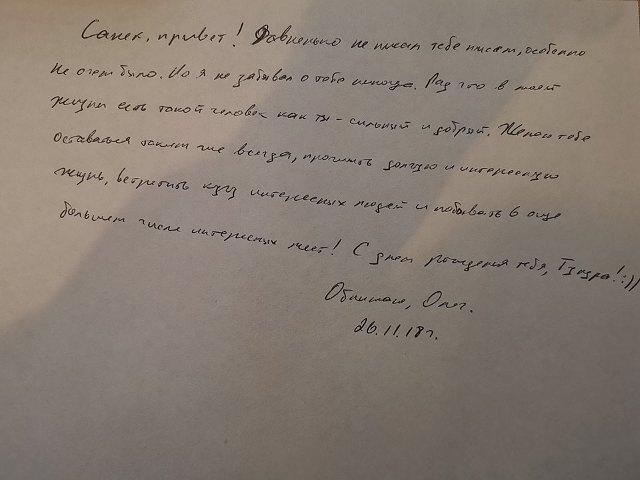 Санек, привет! Давненько не писал тебе писем, особенно
не очем было. Но я не забывал о тебе никогда. Рад что в моей
жизни есть такой человек как ты - сильный и добрый. Желаю тебе
оставаться таким же всегда, прожить долгую и интересную
жизнь, встретить кучу интересных людей и побывать в еще
большем числе интересных мест! С днем рождения тебя, !:))
Обнимаю, Олег.
26.11.18г.